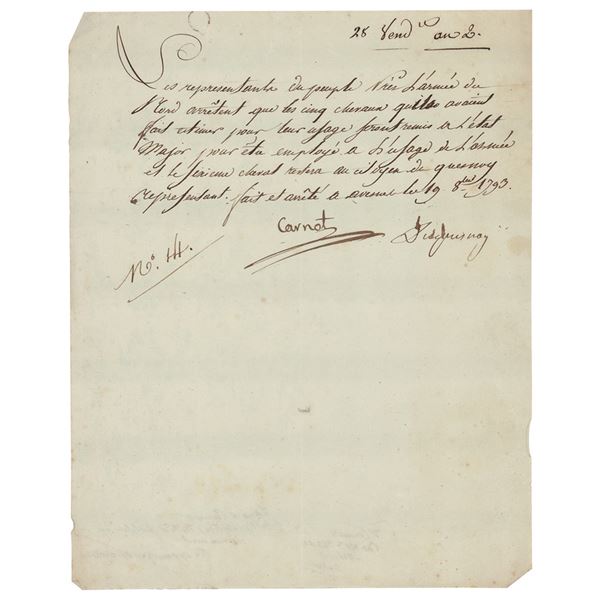 28 Vend.re an 2.
Les representants du peuple Près L'armée du
Nord arrêtent que les cinq chevaux qu'ils avaient
fait estimer pour leur usage seront remis a L'état
Major pour être employé a L'usage de L'armée
et le sixieme cheval restera au citoyen du quesnoy
representant. fait et arrêté a avesnes le 19 8.bre 1793.
Carnot Duquesnoy
N.o 44.